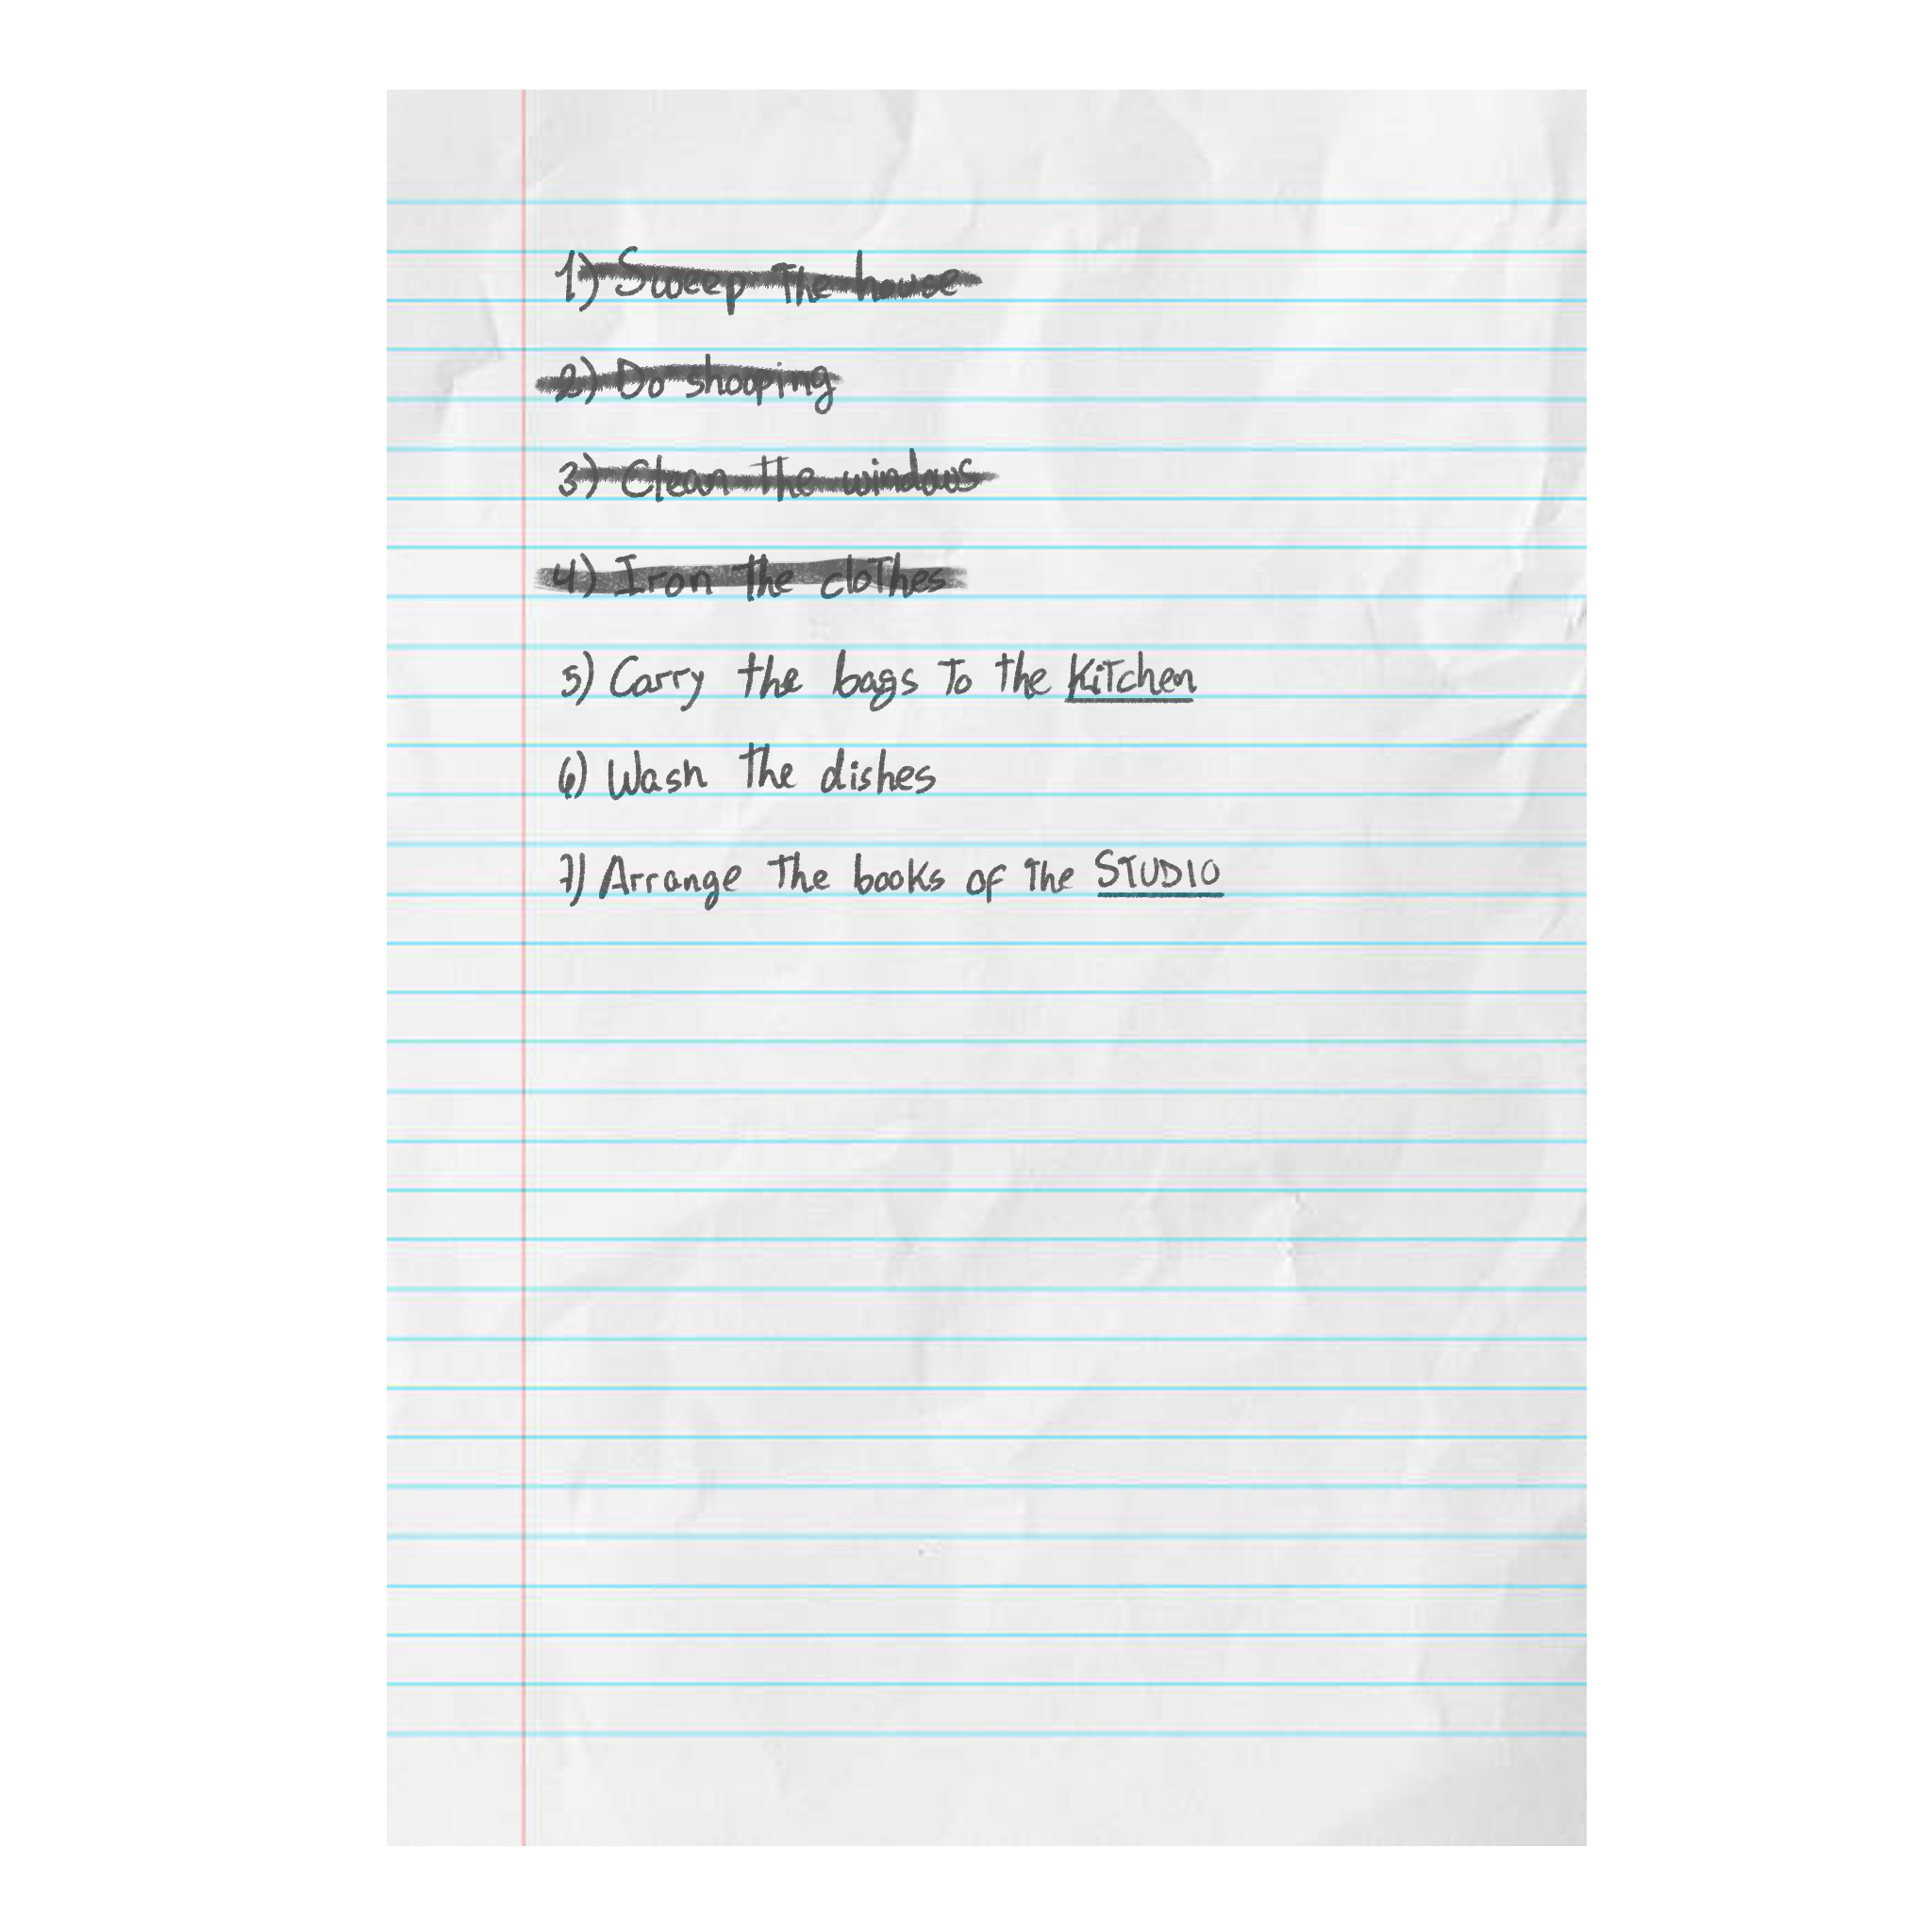 1) Sweep the house
2) Do shooping
3) Clean the windows
4) Iron the clothes
5) Carry the bags to the kitchen
6) Wash the dishes
7) Arrange the books of the STUDIO